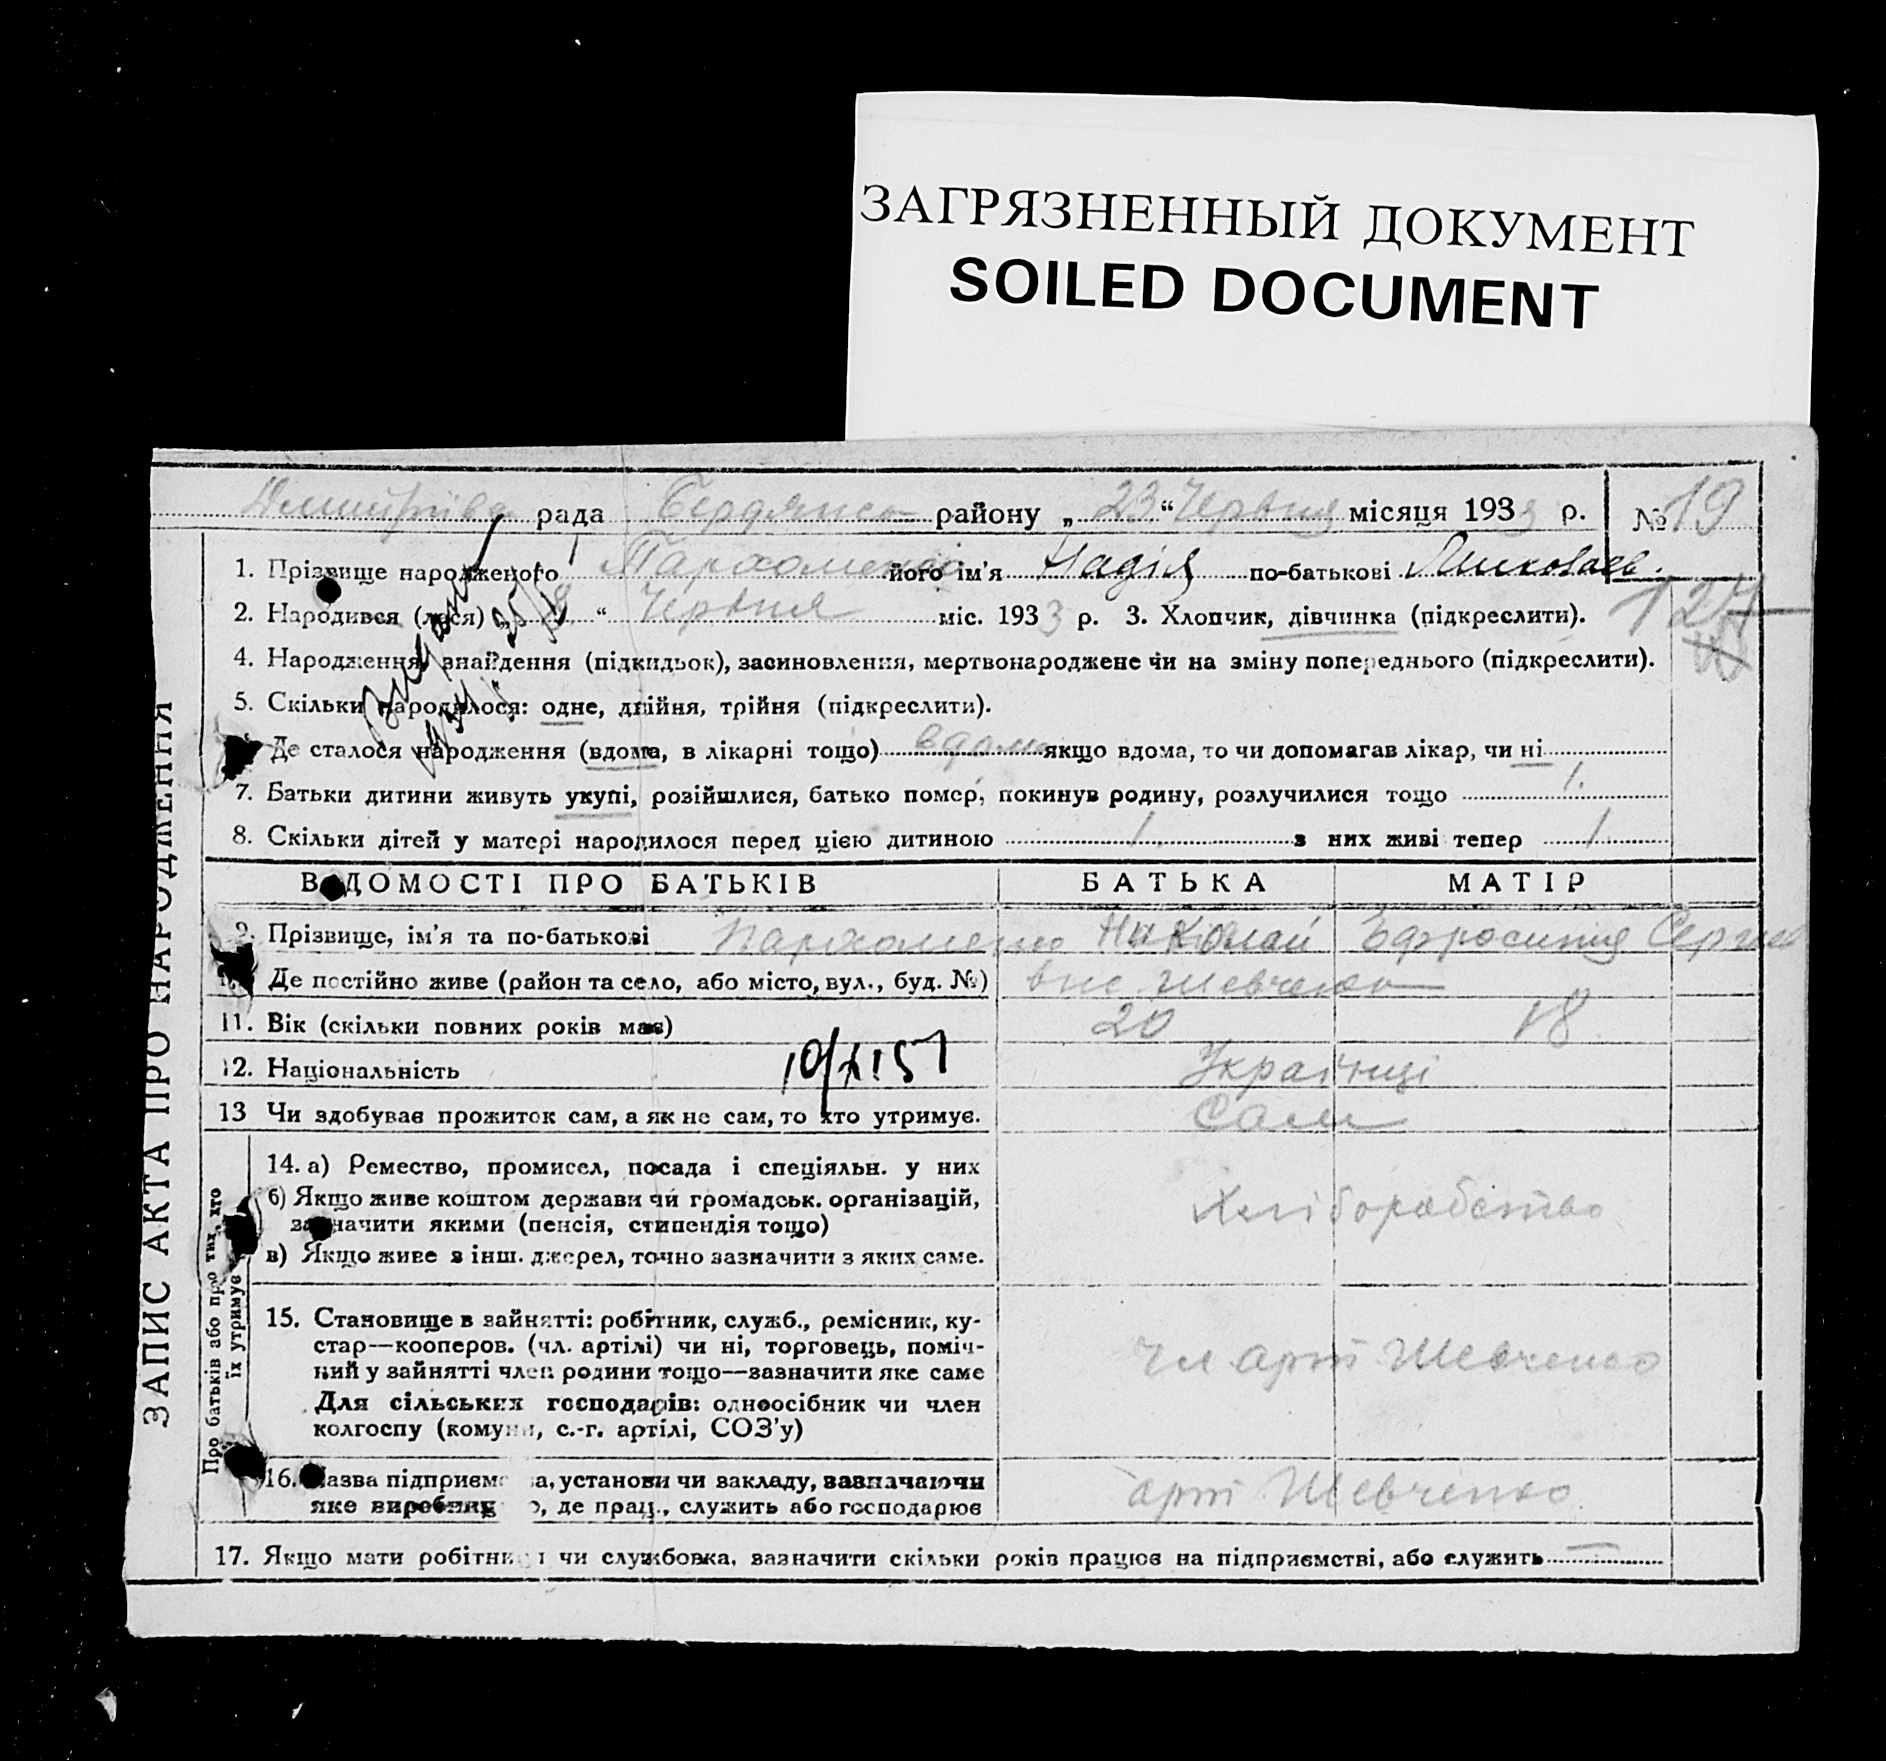 ЗАГРЯЗНЕННЫЙ ДОКУМЕНТ
SOILED DOCUMENT
рада Бердянсь району „ 23 “ Червня місяця 1933 р. № 19
1. Прізвище народженого Пархоменко його ім'я Надія по-батькові Миколаєв.
2. Народився (лася) „ “ Червня міс. 1933 р. 3. Хлопчик, дівчинка (підкреслити).
127
4. Народження, знайдення (підкидьок), засиновлення, мертвонароджене чи на зміну попереднього (підкреслити).
5. Скільки народилося: одне, двійня, трійня (підкреслити).
Де сталося народження (вдома, в лікарні тощо) вдома якщо вдома, то чи допомагав лікар, чи ні
7. Батьки дитини живуть укупі, розійшлися, батько помер, покинув родину, розлучилися тощо 1.
8. Скільки дітей у матері народилося перед цією дитиною 1 з них живі тепер 1
ВІДОМОСТІ ПРО БАТЬКІВ БАТЬКА МАТІР
9. Прізвище, ім'я та по-батькові Пархоменко Николай Ефросиния Сергіев
Де постійно живе (район та село, або місто, вул., буд. №) Шевченко
11. Вік (скільки повних років має) 20 18
12. Національність Українці
13 Чи здобував прожиток сам, а як не сам, то хто утримує. Сам
14. а) Ремество, промисел, посада і спеціяльн. у них
б) Якщо живе коштом держави чи громадськ. організацій,
зазначити якими (пенсія, стипендія тощо) Хліборобство
в) Якщо живе з інш. джерел, точно зазначити з яких саме.
15. Становище в зайнятті: робітник, служб., ремісник, ку-
стар—кооперов. (чл. артілі) чи ні, торговець, поміч-
ний у зайнятті член родини тощо—зазначити яке саме чл арт Шевченко
Для сільських господарів: одноосібник чи член
колгоспу (комуни, с.-г. артілі, СОЗ'у)
16. Назва підприємства, установи чи закладу, зазначаючи арт Шевченко
яке виробниц о, де прац., служить або господарює
17. Якщо мати робітниця чи службовка, зазначити скільки років працює на підприємстві, або служить —
ЗАПИС АКТА ПРО НАРОДЖЕННЯ
Про батьків або про тих, хто
їх утримує